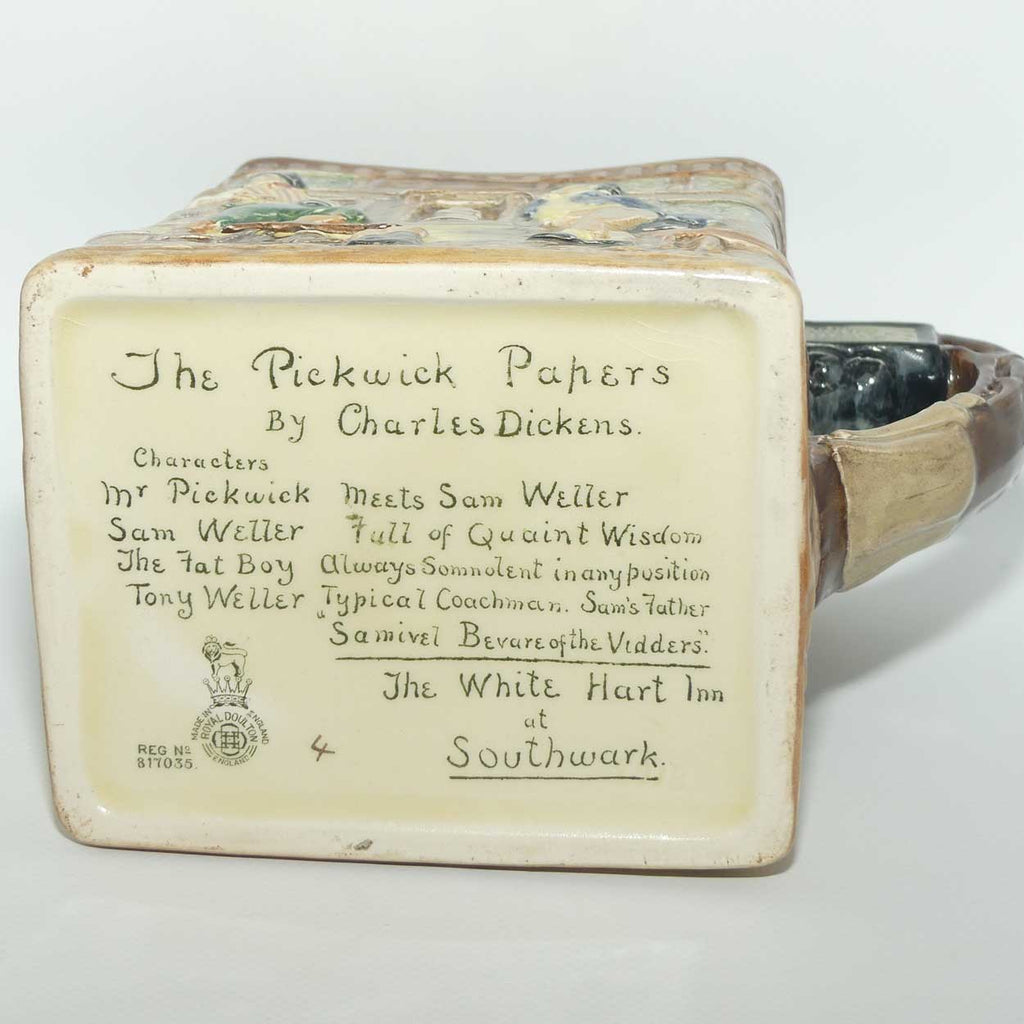 The Pickwick Papers
By Charles Dickens.
Characters
Mr Pickwick Meets Sam Weller
Sam Weller Full of Quaint Wisdom
The Fat Boy Always Somnolent in any position
Tony Weller Typical Coachman. Sam's Father
"Samivel Bevare of the Vidders".
The White Hart Inn
at
Southwark.
MADE IN ENGLAND
ROYAL DOULTON
ENGLAND
REG Nº
817035.
4